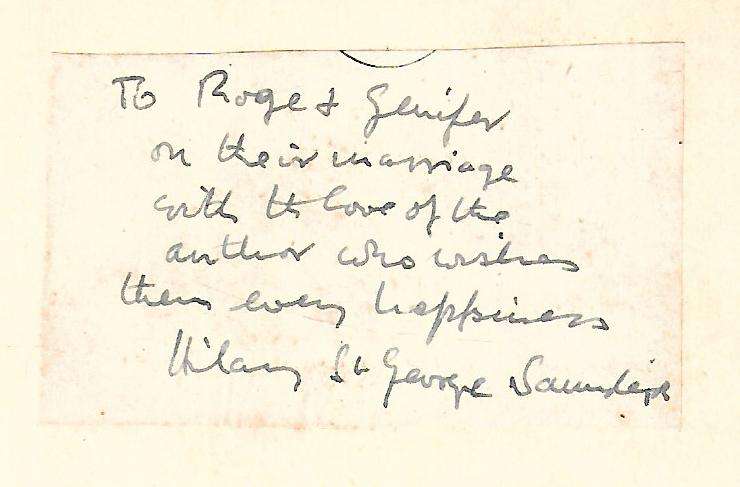 To Roge & Genifer
on their marriage
with th love of the
author who wishes
them every happiness
Hilary St George Saunders